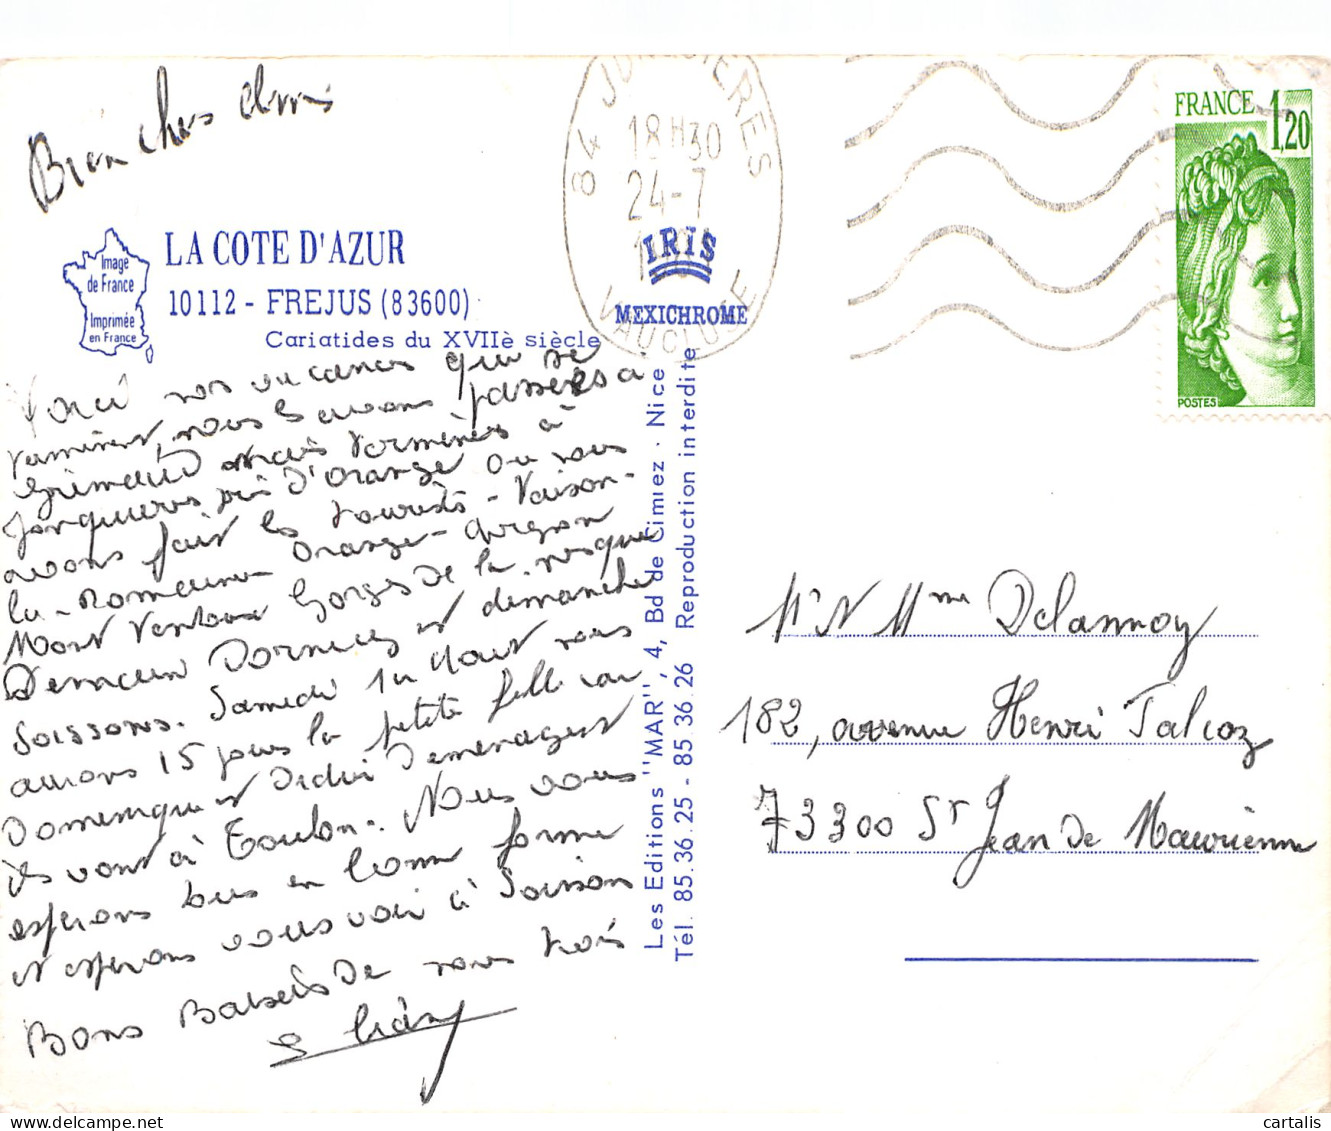 Bien chers Amis
LA COTE D'AZUR
10112 - FREJUS (83600)
Cariatides du XVIIè siècle
Image
de France
Imprimée
en France
84 JONQUIERES
18H30
24-7
VAUCLUSE
IRIS
MEXICHROME
FRANCE 1,20
POSTES
Voici nos vacances qui se
terminent, nous les avons passées à
Grimaud mais terminées à
Jonquieres près d'Orange ou nous
avons fait les tourists - Vaison-
la-Romaine Orange - Avignon
Mont Ventoux Gorges de la nesque
Demain Dormans et dimanche
Soissons. Samedi 1er Aout nous
aurons 15 jours la petite fille car
Dominique et Didier demenagent
ils vont à Toulon. Nous vous
esperons tous en bonne forme
et esperons vous voir à Soisson
Bons Baisers de nous trois
Les Editions "MAR", 4, Bd de Cimiez - Nice
Tél. 85.36.25 - 85.36.26 Reproduction interdite
Mr N Mme Delannoy
182, avenue Henri Falcoz
73300 St Jean de Maurienne
cartalis